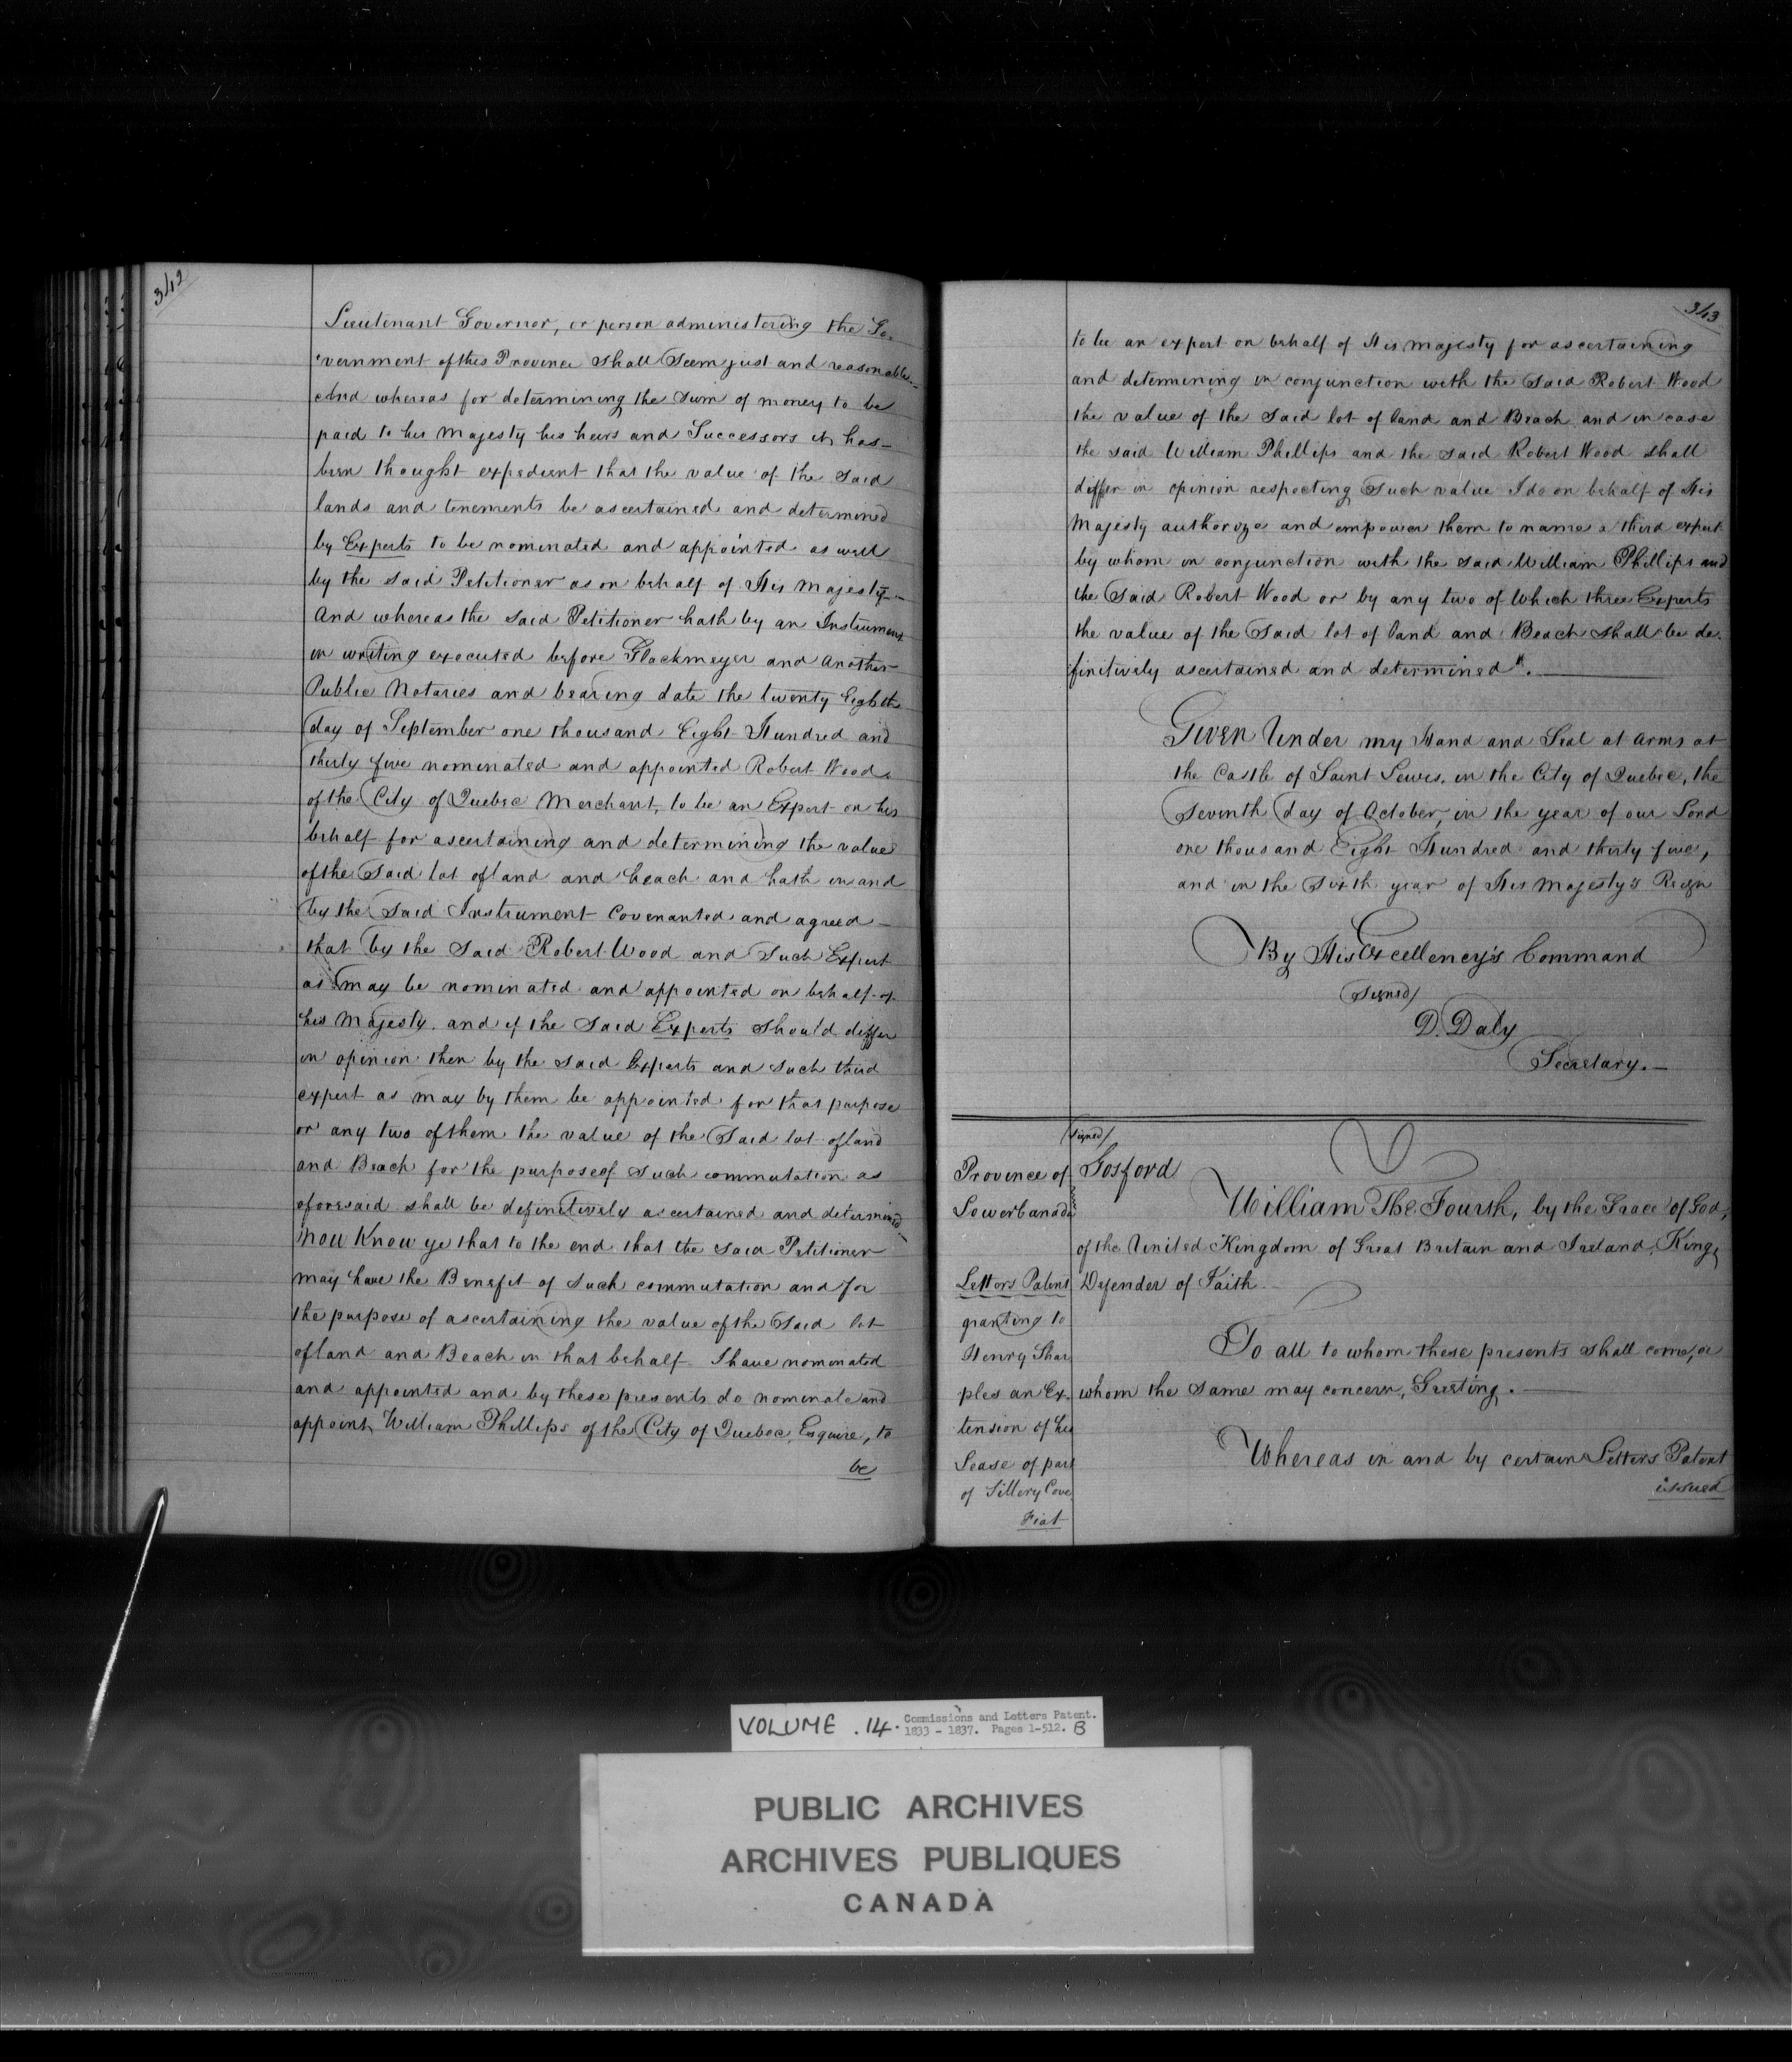 342
Lieutenant Governor, or person administering the Go-
vernment of this Province shall Seem just and reasonable.-
And whereas for determining the Sum of money to be
paid to his Majesty his heirs and Successors it has-
been thought expedient that the value of the Said
lands and tenements be ascertained and determined
by Experts to be nominated and appointed as well
by the Said Petitioner as on behalf of His Majesty-
And whereas the Said Petitioner hath by an Instrument
in writing executed before Glackmeyer and Another
Public Notaries and bearing date the twenty Eighth
day of September one thousand Eight Hundred and
thirty five nominated and appointed Robert Wood
of the City of Quebec Merchant, to be an Expert on his
behalf for ascertaining and determining the value
of the Said lot of land and beach and hath in and
by the Said Instrument Covenanted and agreed-
that by the Said Robert Wood and Such Expert
as may be nominated and appointed on behalf of
his Majesty. and if the Said Experts Should differ
in opinion then by the Said Experts and Such third
expert as may by them be appointed for that purpose
or any two of them the value of the Said lot of land
and Beach for the purpose of Such commutation as
aforesaid shall be definitively ascertained and determined-
Now Know ye that to the end that the Said Petitioner
may have the Benefit of Such commutation and for
the purpose of ascertaining the value of the Said lot
of land and Beach in that behalf I have nominated
and appointed and by these presents do nominate and
appoint William Phillips of the City of Quebec, Esquire, to
be
343
to be an expert on behalf of His Majesty for ascertaining
and determining in conjunction with the Said Robert Wood
the value of the Said lot of land and Beach and in case
the said William Phillips and the said Robert Wood shall
differ in opinion respecting Such value I do on behalf of His
Majesty authorize and empower them to name a third expert
by whom in conjunction with the said William Phillips and
the Said Robert Wood or by any two of Which three Experts
the value of the Said lot of land and Beach Shall be de-
finitively ascertained and determined.
Given Under my Hand and Seal at Arms at
the Castle of Saint Lewis, in the City of Quebec, the
Seventh day of October, in the year of our Lord
one thousand Eight Hundred and thirty five,
and in the Sixth year of His Majesty's Reign
By His Excellency's Command
(Signed)
D. Daly
Secretary.-
(signed)
Province of Gosford
Lower Canada
William The Fourth, by the Grace of God,
of the United Kingdom of Great Britain and Ireland, King,
Defender of Faith
To all to whom these presents shall come, or
whom the Same may concern, Greeting.
Whereas in and by certain Letters Patent
issued
Letters Patent
granting to
Henry Shar
ples an Ex-
tension of his
Lease of part
of Sillery Cove
Fiat
VOLUME .14. Commissions and Letters Patent.
1833 - 1837. Pages 1-512. B
PUBLIC ARCHIVES
ARCHIVES PUBLIQUES
CANADA